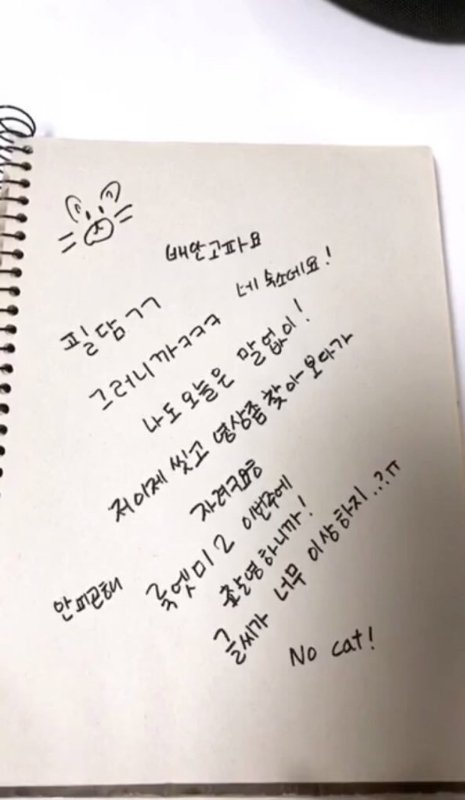 배안고파요
네 숙소네요!
필담ㄱㄱ
그러니까ㅋㅋㅋ
나도 오늘은 말없이!
저이제 씻고 영상좀 찾아보다가
자려구요ㅎ
룩엣미 2 이번주에
촬영하니까!
안피곤해
글씨가 너무 이상하지..?ㅠ
No cat!